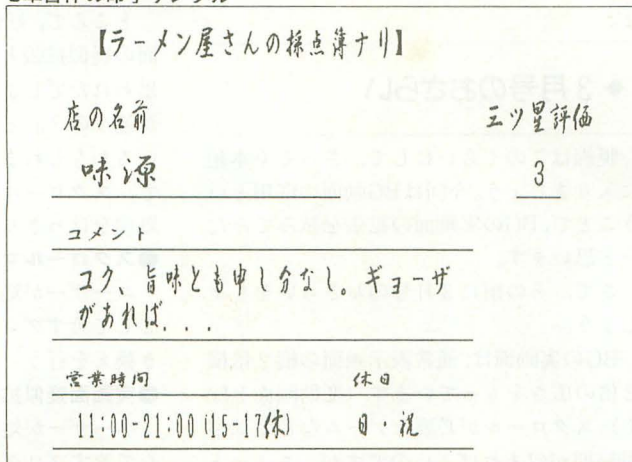 【ラーメン屋さんの採点簿ナリ】
店の名前 三ツ星評価
味源 3
コメント
コク、旨味とも申し分なし。ギョーザ
があれば...
営業時間 休日
11:00-21:00(15-17休) 日・祝